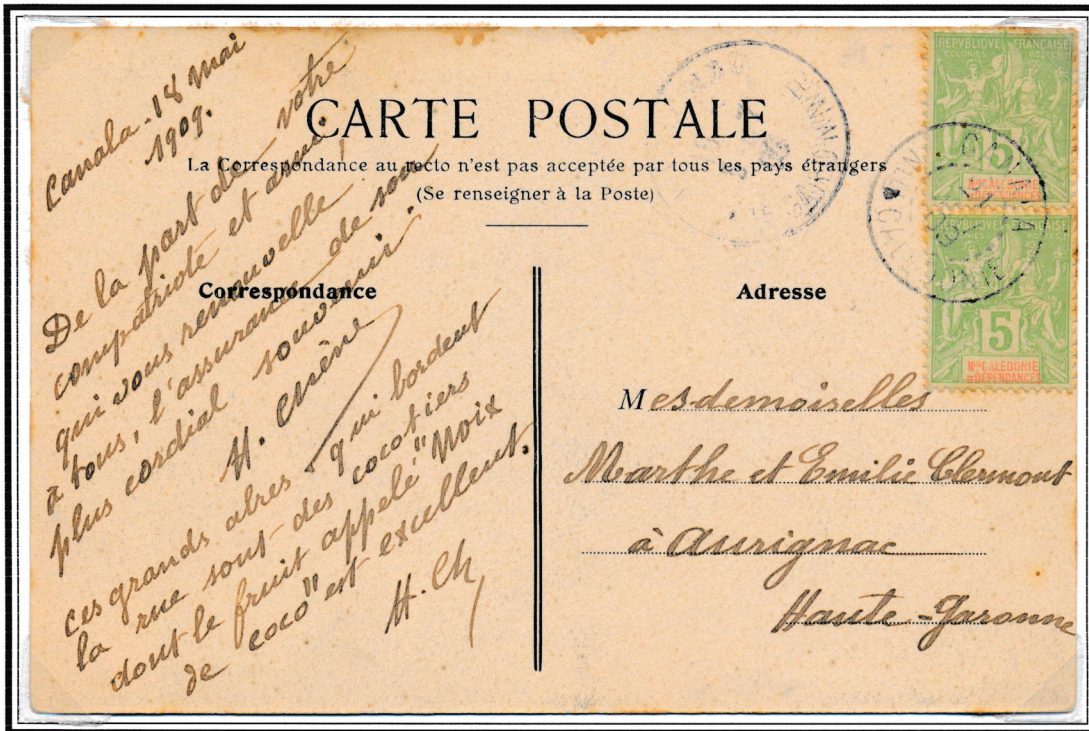 CARTE POSTALE
La Correspondance au recto n'est pas acceptée par tous les pays étrangers
(Se renseigner à la Poste)
Correspondance
Canala-18 Mai
1909.
De la part de votre
compatriote et ami
qui vous renouvelle,
à tous, l'assurance de son
plus cordial souvenir.
H. Chêne
Ces grands abres qui bordent
la rue sont des cocotiers
dont le fruit appelé "Noix
de coco" est excellent.
H. Ch
Adresse
Mesdemoiselles
Marthe et Emilie Clermont
à Aurignac
Haute-Garonne
REPVBLIQVE FRANÇAISE
COLONIES POSTES
5
Nlle CALÉDONIE
et DÉPENDANCES
REPVBLIQVE FRANÇAISE
5
Nlle CALÉDONIE
et DÉPENDANCES
CANALA